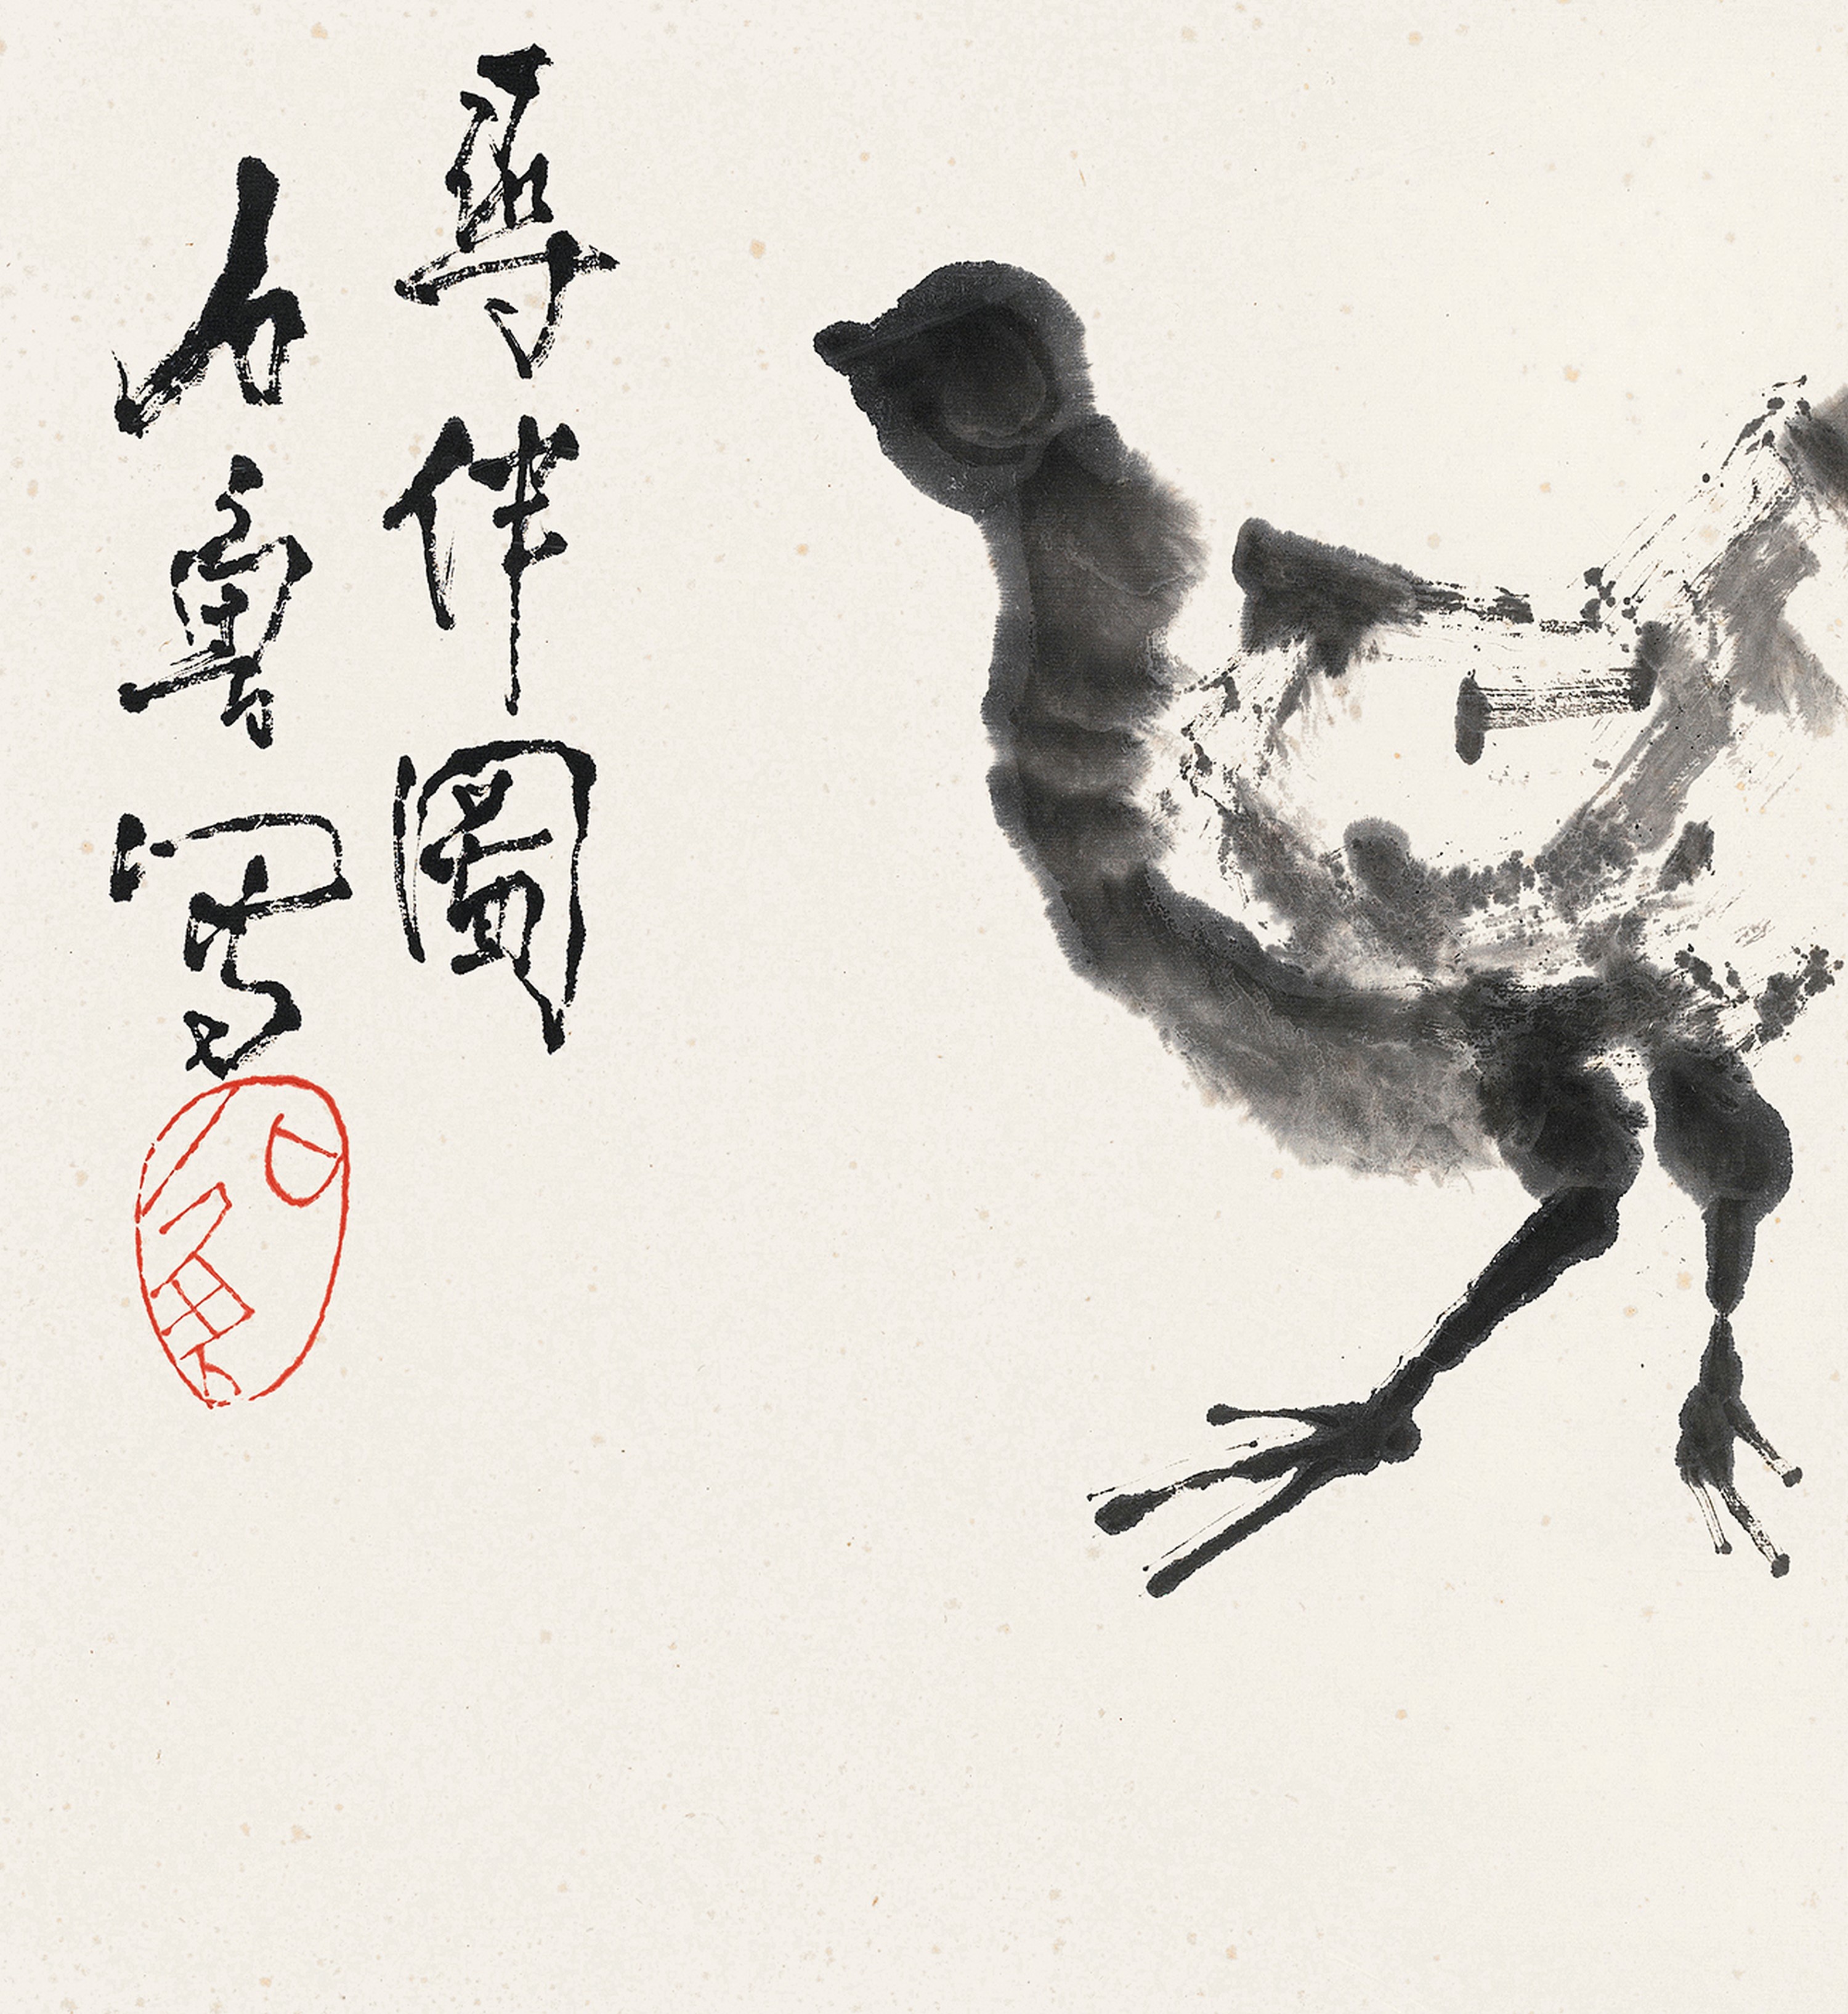 尋伴圖
石魯寫